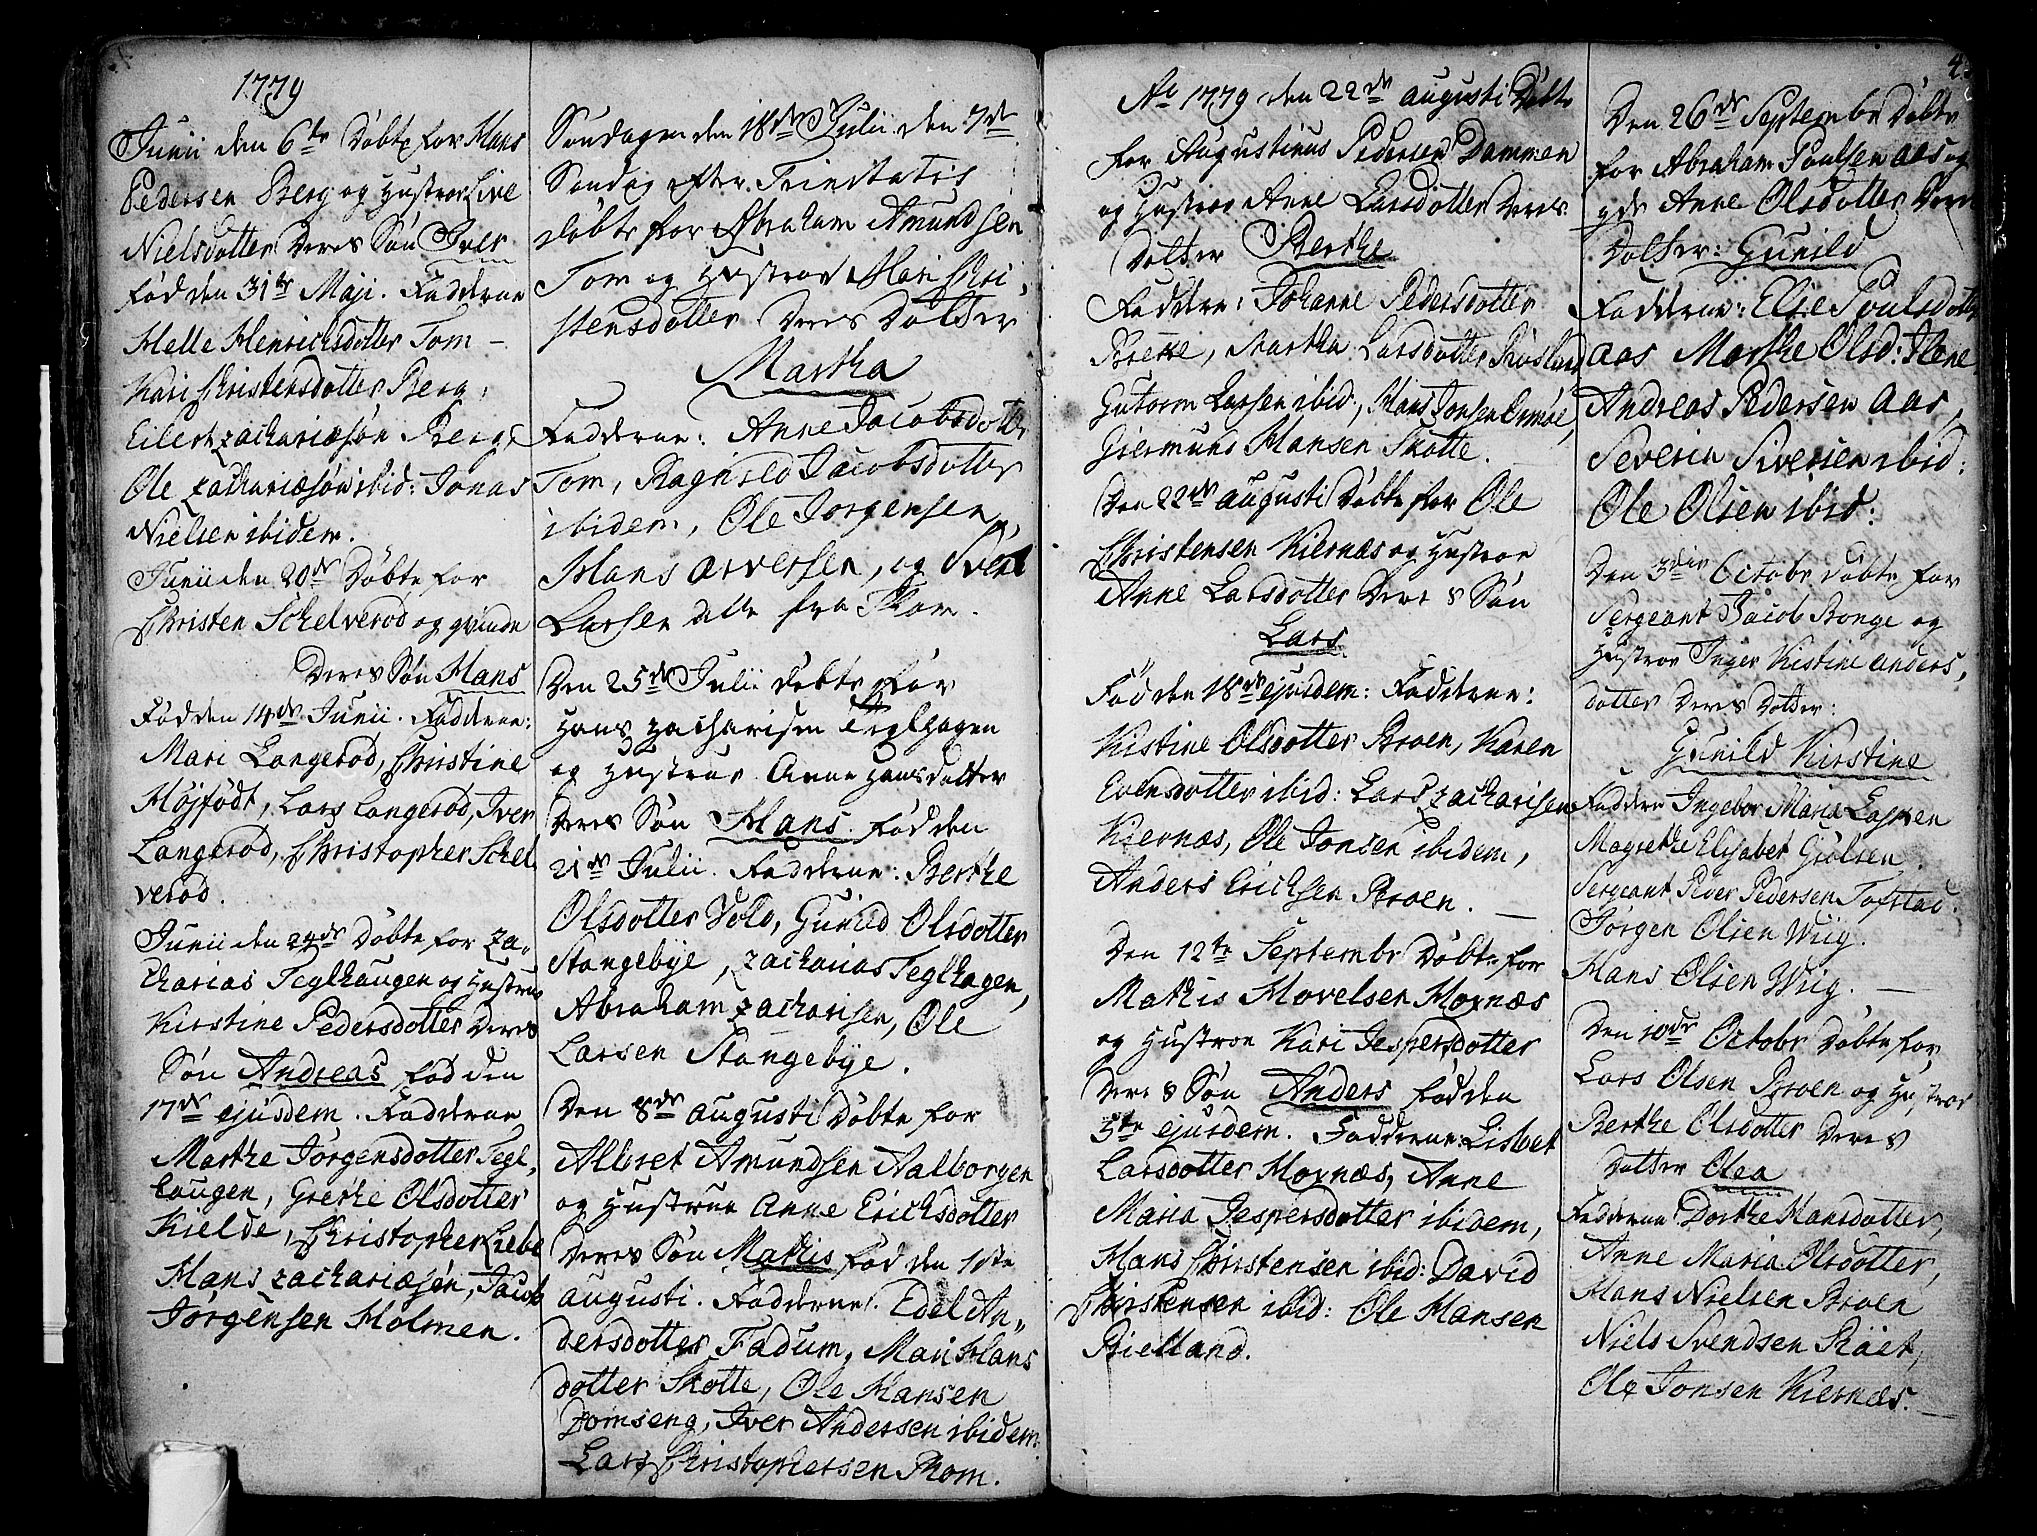 1779
Junii den 6te Døbt for Hans
Pedersen Berg og Hustroe Live
Nielsdotter Deres Søn Iver
fød den 31te Maji. Fadderne
Helle Henrichsdotter Tom
Kari Christensdotter Berg,
Eilert zachariæsøn Berg,
Ole zachariæsøn ibid: Jonas
Nielsen ibidem.
Junii den 20de Døbt for
Christen Schelverod og qvinde
Deres Søn Hans
Fød den 14de Junii. Fadderne:
Mari Langerød, Christine
Højfødt, Lars Langerød, Iver
Langerød, Christopher Schel
verod.
Junii den 24de Døbt for Za-
charias Teglhaugen og Hustrue
Kirstine Pedersdotter Deres
Søn Andreas fød den
17de ejusdem. Fadderne
Marthe Jørgensdotter Tegl,
haugen, Grethe Olsdotter
Kielde, Christopher Liebe
Hans zachariæsøn, Jacob
Jørgensen Holmen.
Søndagen den 18de Julii den 7de
Søndag efter Trinitatis
døbt for Abraham Amundsen
Tom og Hustroe Mari Chri,
stensdotter Deres Dotter
Martha
Fadderne: Anne Jacobsdotter
Tom, Ragnild Jacobsdotter
ibidem, Ole Jørgensen,
Hans arversen, og Svend
Larsen alle fra Thom.
Den 25de Julii døbt for
Hans zacharisen Teglhagen
og Hustrue Anne Hansdotter
Deres Søn Hans. fød den
21de Julii. Fadderne: Berthe
Olsdotter Vold, Gunild Olsdotter
Stangebye, zacharias Teglhagen,
Abraham zacharisen, Ole
Larsen Stangebye.
Den 8de augusti Døbt for
Albret Amundsen Aalborgen
og Hustrue Anne Erichsdotter
Deres Søn Mathis fød den 1ste
augusti. Fadderne. Edel An,
dersdotter Fadum, Mari Hans
dotter Skotte, Ole Hansen
Domseng, Iver Andersen ibidem.
Lars Christophersen Thom.
Ao 1779 den 22de augusti Døbt
for Augustinus Pedersen Dammen
og Hustroe Anne Larsdotter Deres
Dotter Berthe
Faddere: Johanne Pedersdotter
Brekke, Martha Larsdotter
Gutorm Larsen ibid., Hans Jonsen
Giermund Hansen Skotte.
Den 22de augusti Døbt for Ole
Christensen Kiernæs og Hustroe
Anne Larsdotter Deres Søn
Lars
Fød den 18de ejusdem: Fadderne:
Kistine Olsdotter Broen, Karen
Evensdotter ibid: Lars zacharisen
Kiernæs, Ole Jonsen ibidem,
Anders Erichsen Broen.
Den 12te Septembr Døbt for
Mathis Hovelsen Hornæs
og Hustroe Kari Jespersdotter
Deres Søn Anders fød den
5te ejusdem. Fadderne: Lisbet
Larsdotter Hornæs, Anne
Maria Jespersdotter ibidem,
Hans Christensen ibid: David
Christensen ibid: Ole Hansen
Bielland.
Den 26de Septembr Døbt
for Abraham Poulsen aas og
Anne Olsdotter Deres
Dotter: Gunild
Fadderne: Else Poulsdotter
aas Marthe Olsd:
Andreas Pedersen aas,
Severin Siversen ibid:
Ole Olsen ibid:
Den 3die Octobr døbt for
Sergeant Jacob Bonge og
Hustroe Inger Kistine anders,
dotter Deres Dotter:
Gunild Kirstine
Faddere Ingebor Maria
Magrethe Elisabet
Sergeant Peder Pedersen Tofstad.
Jørgen Olsen Wiig.
Hans Olsen Wiig.
Den 10de Octobr Døbt for
Lars Olsen Broen og Hustroe
Berthe Olsdotter Deres
Dotter Olea
Fadderne Dorthe Hansdotter,
Anne Maria Olsdotter,
Hans Nielsen Broen
Niels Svendsen
Ole Jonsen Kiernæs.